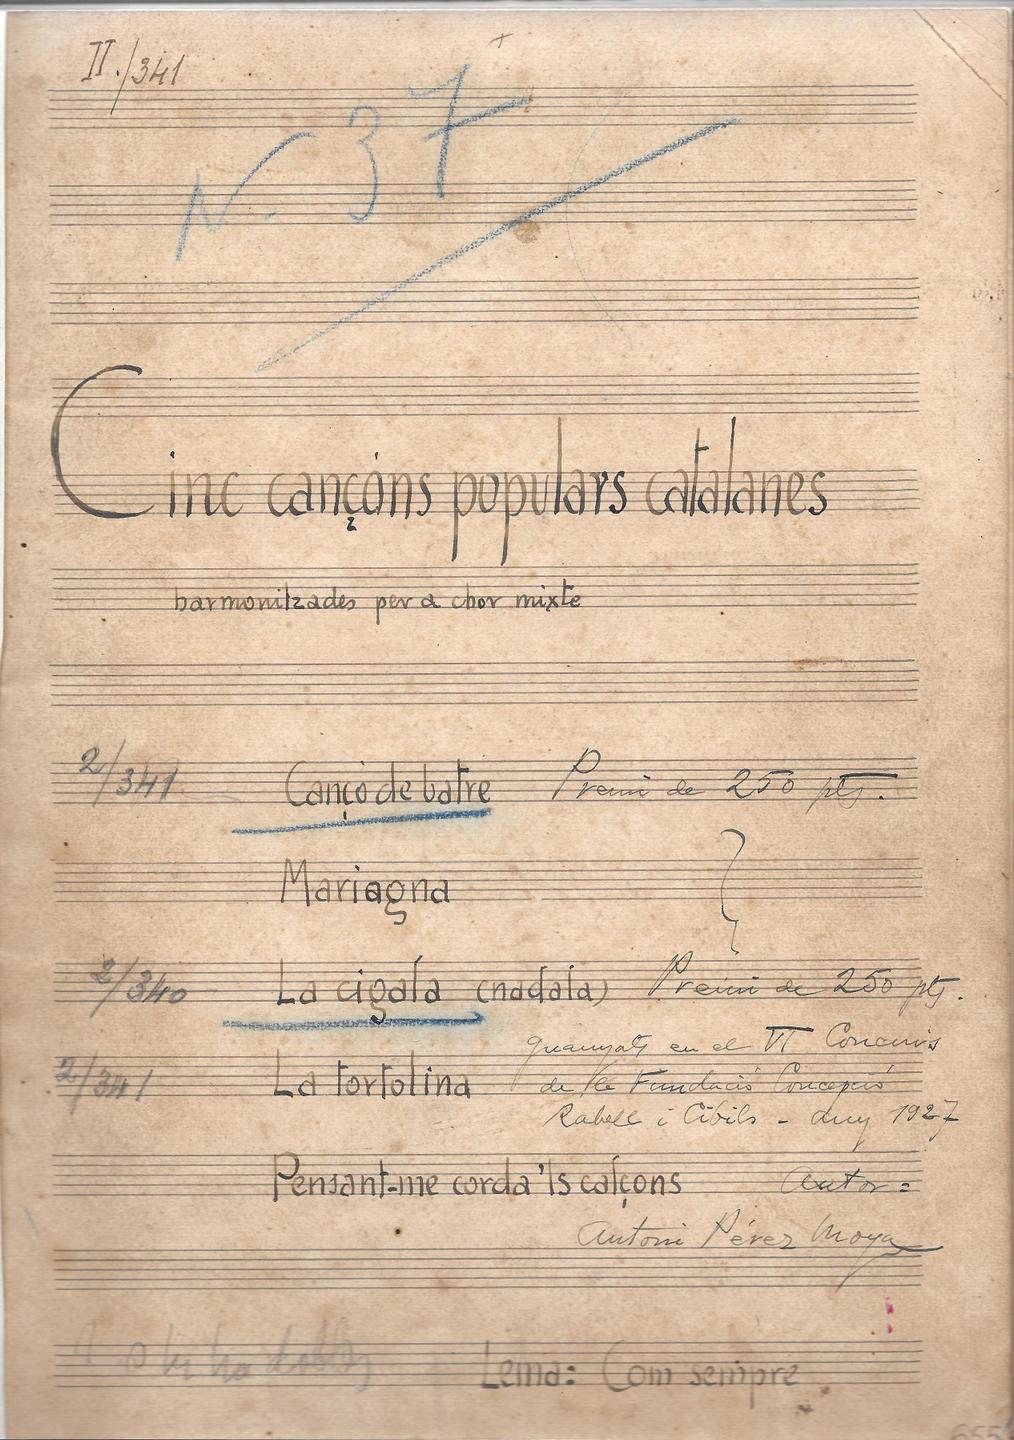 II./341
N- 37
Cinc cançóns populars catalanes
harmonitzades per a chor mixte
2/341 Cançó de batre Premi de 250 pts.
Mariagna
2/340 La cigala (nadala) Premi de 250 pts.
guanyats en el VI Concurs
2/341 La tortolina de la Fundació Concepció
Rabell i Cibils - any 1927
Pensant-me corda'ls calçons Autor=
Antoni Pérez Moya
Lema: Com sempre
655